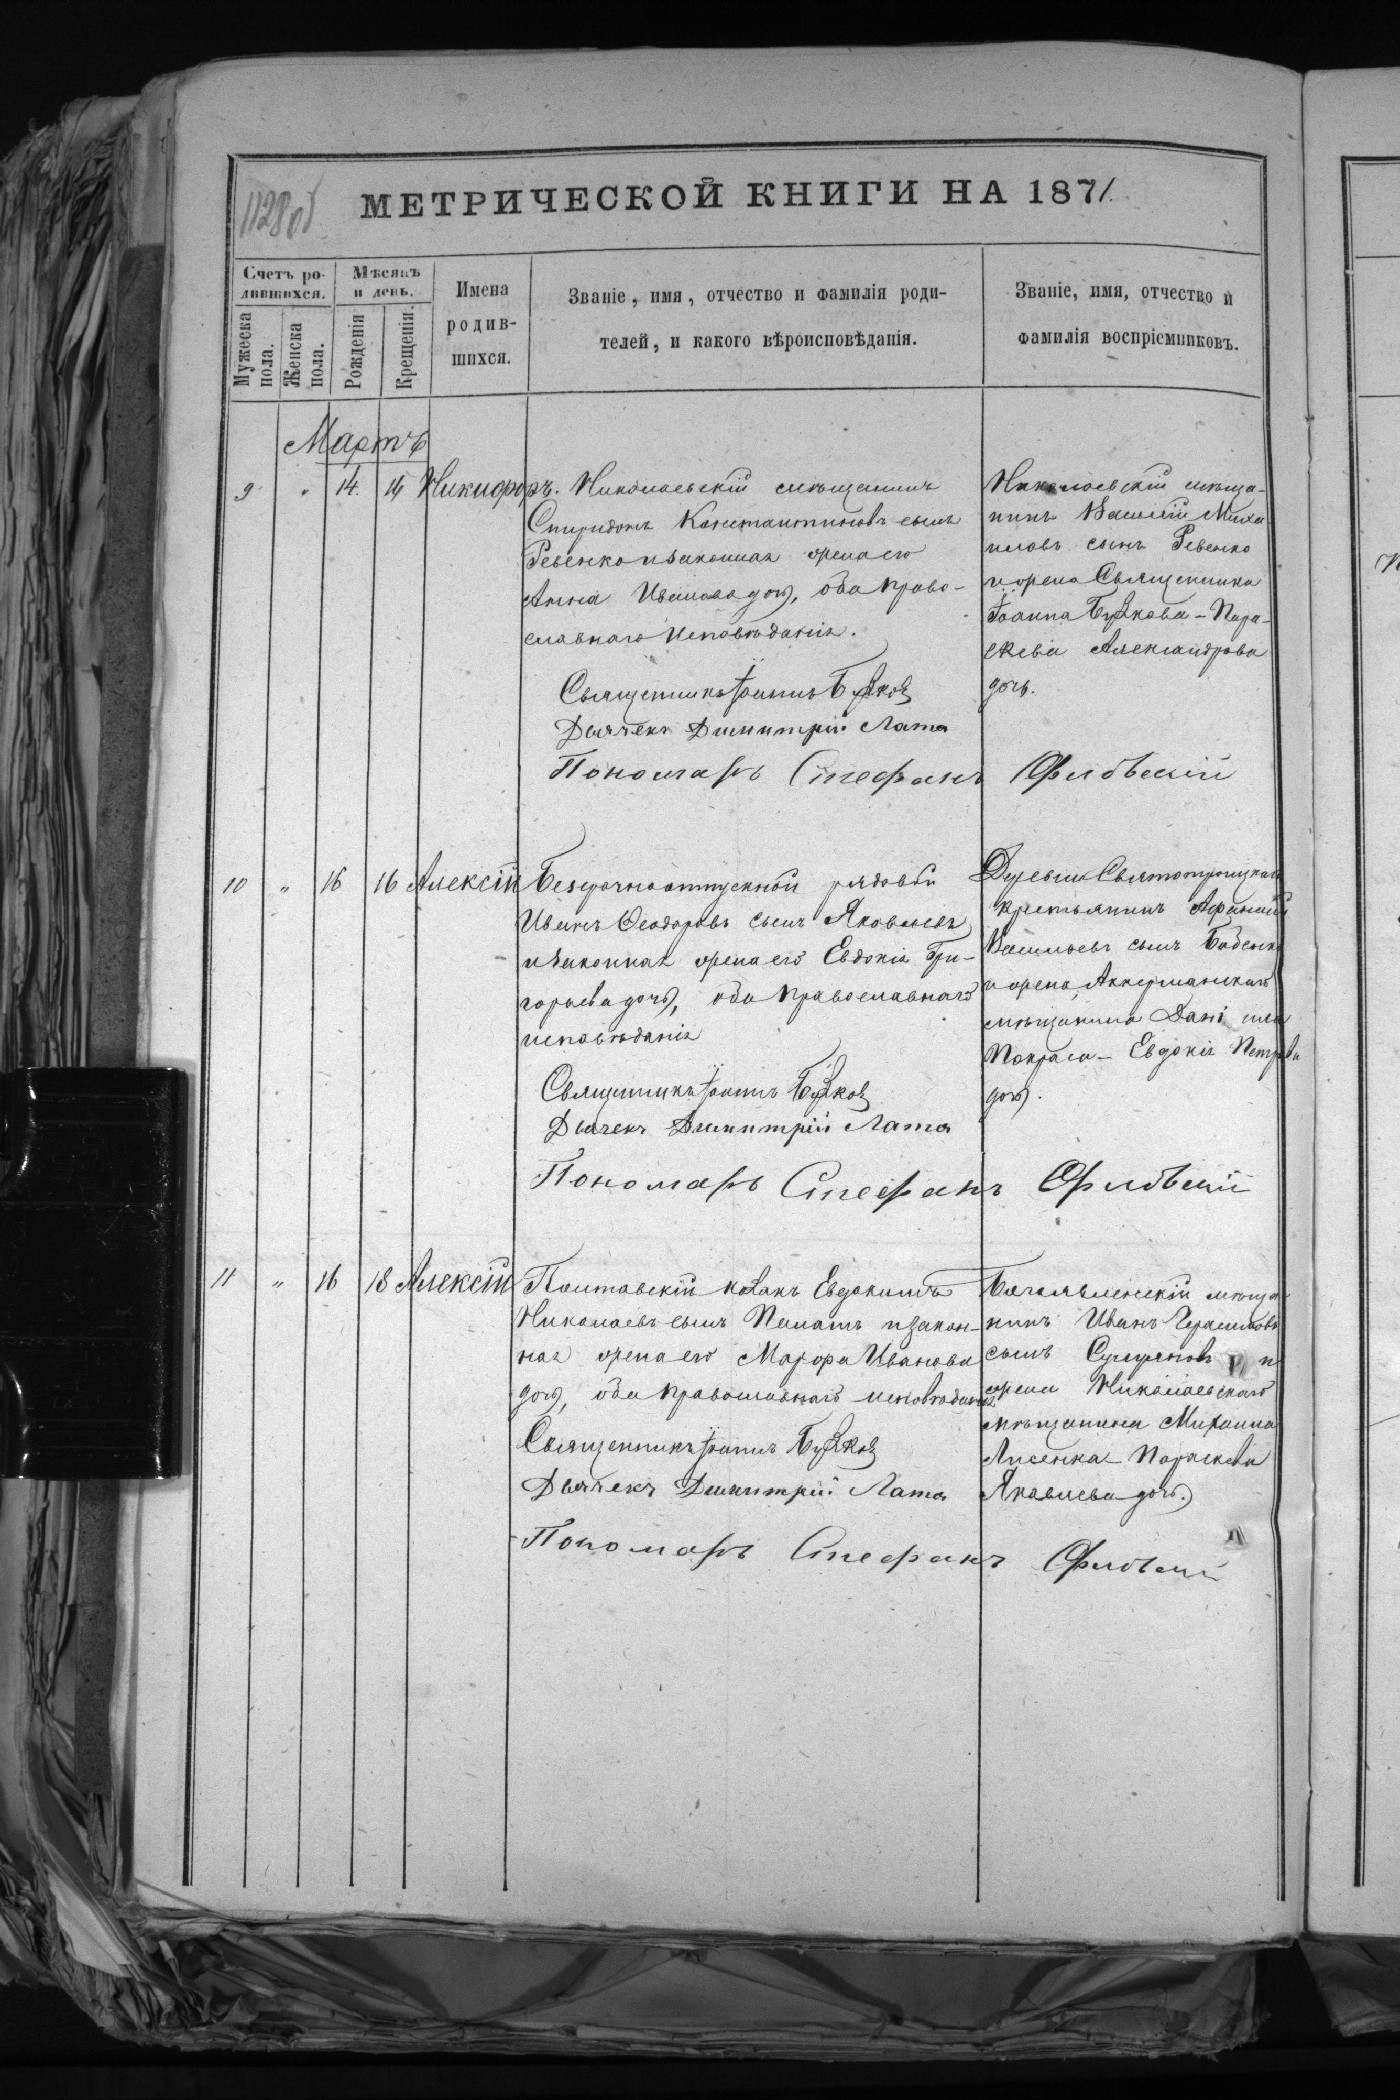 1128 об
МЕТРИЧЕСКОЙ КНИГИ НА 1871.
Счетъ ро-
дившихся.
Мѣсяцъ
и день.
Имена
родив-
шихся.
Званіе, имя, отчество и фамилія роди-
телей, и какого вѣроисповѣданія.
Званіе, имя, отчество и
фамилія воспріемниковъ.
Мужеска
пола.
Женска
пола.
Рожденія
Крещенія.
Мартъ
9 " 14. 16 Никифоръ. Николаевскій мѣщанинъ
Спиридонъ Константиновъ сынъ
Ревенко и законная жена его
Анна Иванова дочь, оба право-
славнаго исповѣданія.
Николаевскій мѣща-
нинъ Василій Миха
иловъ сынъ Ревенко
и жена Священника
Іоанна Бужкова - Пара-
скевія Александрова
дочь.
Священникъ Іоаннъ Бужковъ
Дьячекъ Димитрій Лата
Пономарь Стефанъ
10 " 16 16 Алексій Безсрочноотпускной рядовой
Иванъ Ѳеодоровъ сынъ Яковлевъ
и законная жена его Евдокія Гри-
горьева дочь, оба православнаго
исповѣданія
Деревни Святотроицкой
крестьянинъ Афанасій
Васильевъ сынъ
и жена Аккерманскаго
мѣщанина Даніила
Покраса - Евдокія Петрова
дочь.
Священникъ Іоаннъ Бужковъ
Дьячекъ Димитрій Лата
Пономарь Стефанъ
11 " 16 18 Алексій Полтавскій козакъ Евдокимъ
Николаевъ сынъ и закон-
ная жена его Марфа Иванова
дочь, оба православнаго исповѣданія
мѣща
нинъ Иванъ Герасимовъ
сынъ и
жена Николаевскаго
мѣщанина Михаила
Лисенка Параскева
Яковлева дочь.
Священникъ Іоаннъ Бужковъ
Дьячекъ Димитрій Лата
Пономарь Стефанъ